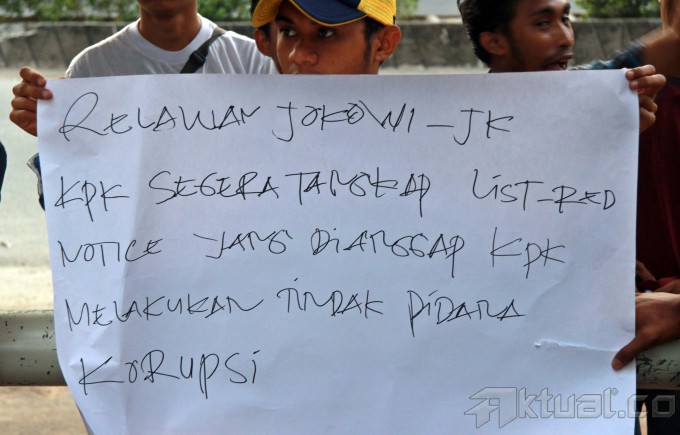 RELAWAN JOKOWI-JK
KPK SEGERA TANGKAP LIST-RED
NOTICE YANG DIANGGAP KPK
MELAKUKAN TINDAK PIDANA
KORUPSI
Aktual.co